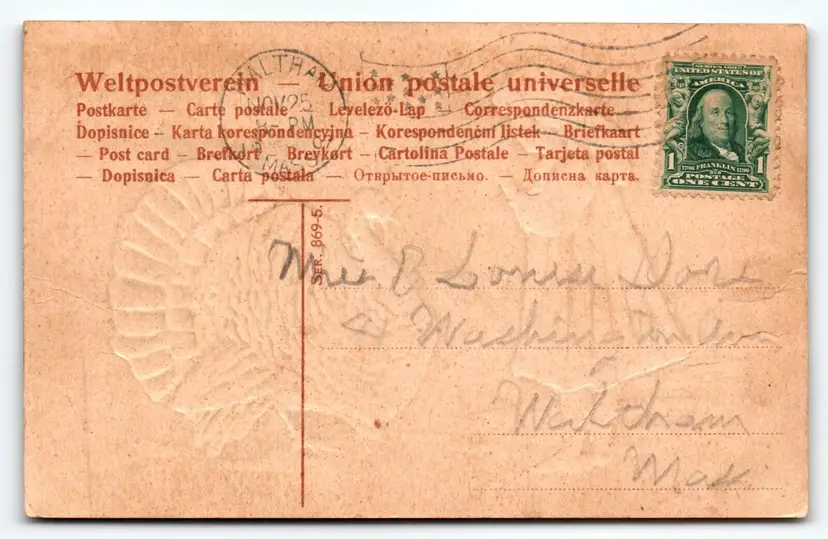 Weltpostverein — Union postale universelle
Postkarte — Carte postale — Levelező-Lap — Correspondenzkarte
Dopisnice — Karta korespondencyjna — Korespondenční listek — Briefkaart
— Post card — Brefkort — Brevkort — Cartolina Postale — Tarjeta postal
— Dopisnica — Carta postala — Открытое-письмо. — Дописна карта.
WALTHAM
NOV 25
PM
MASS
SERIES 1902
UNITED STATES OF
AMERICA
1706 FRANKLIN 1790
1 1
POSTAGE
ONE CENT
SER. 869-5.
B Louise
Washington Ave
Waltham
Mass